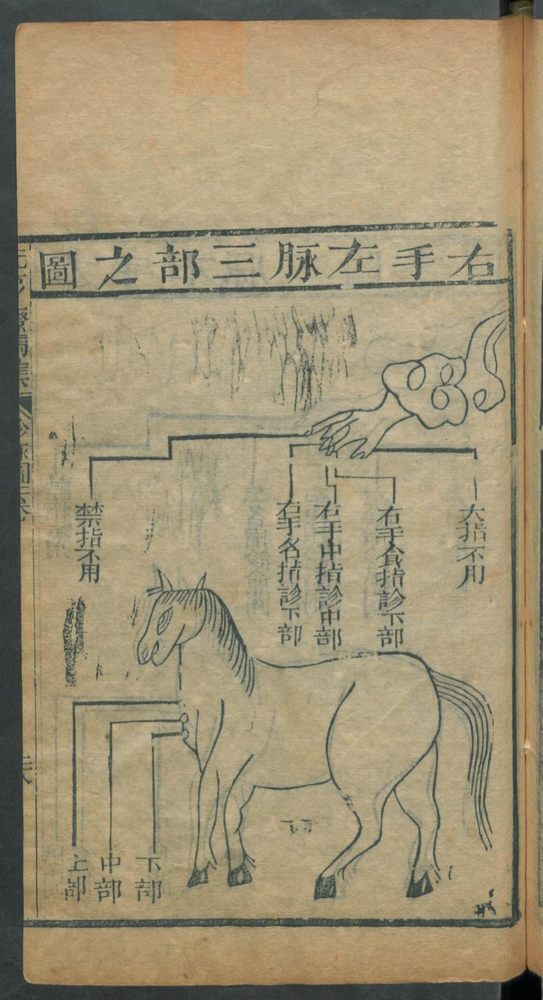 右手左脉三部之圖
大指不用
右手食指診下部
右手中指診中部
右手名指診下部
禁指不用
下部
中部
上部